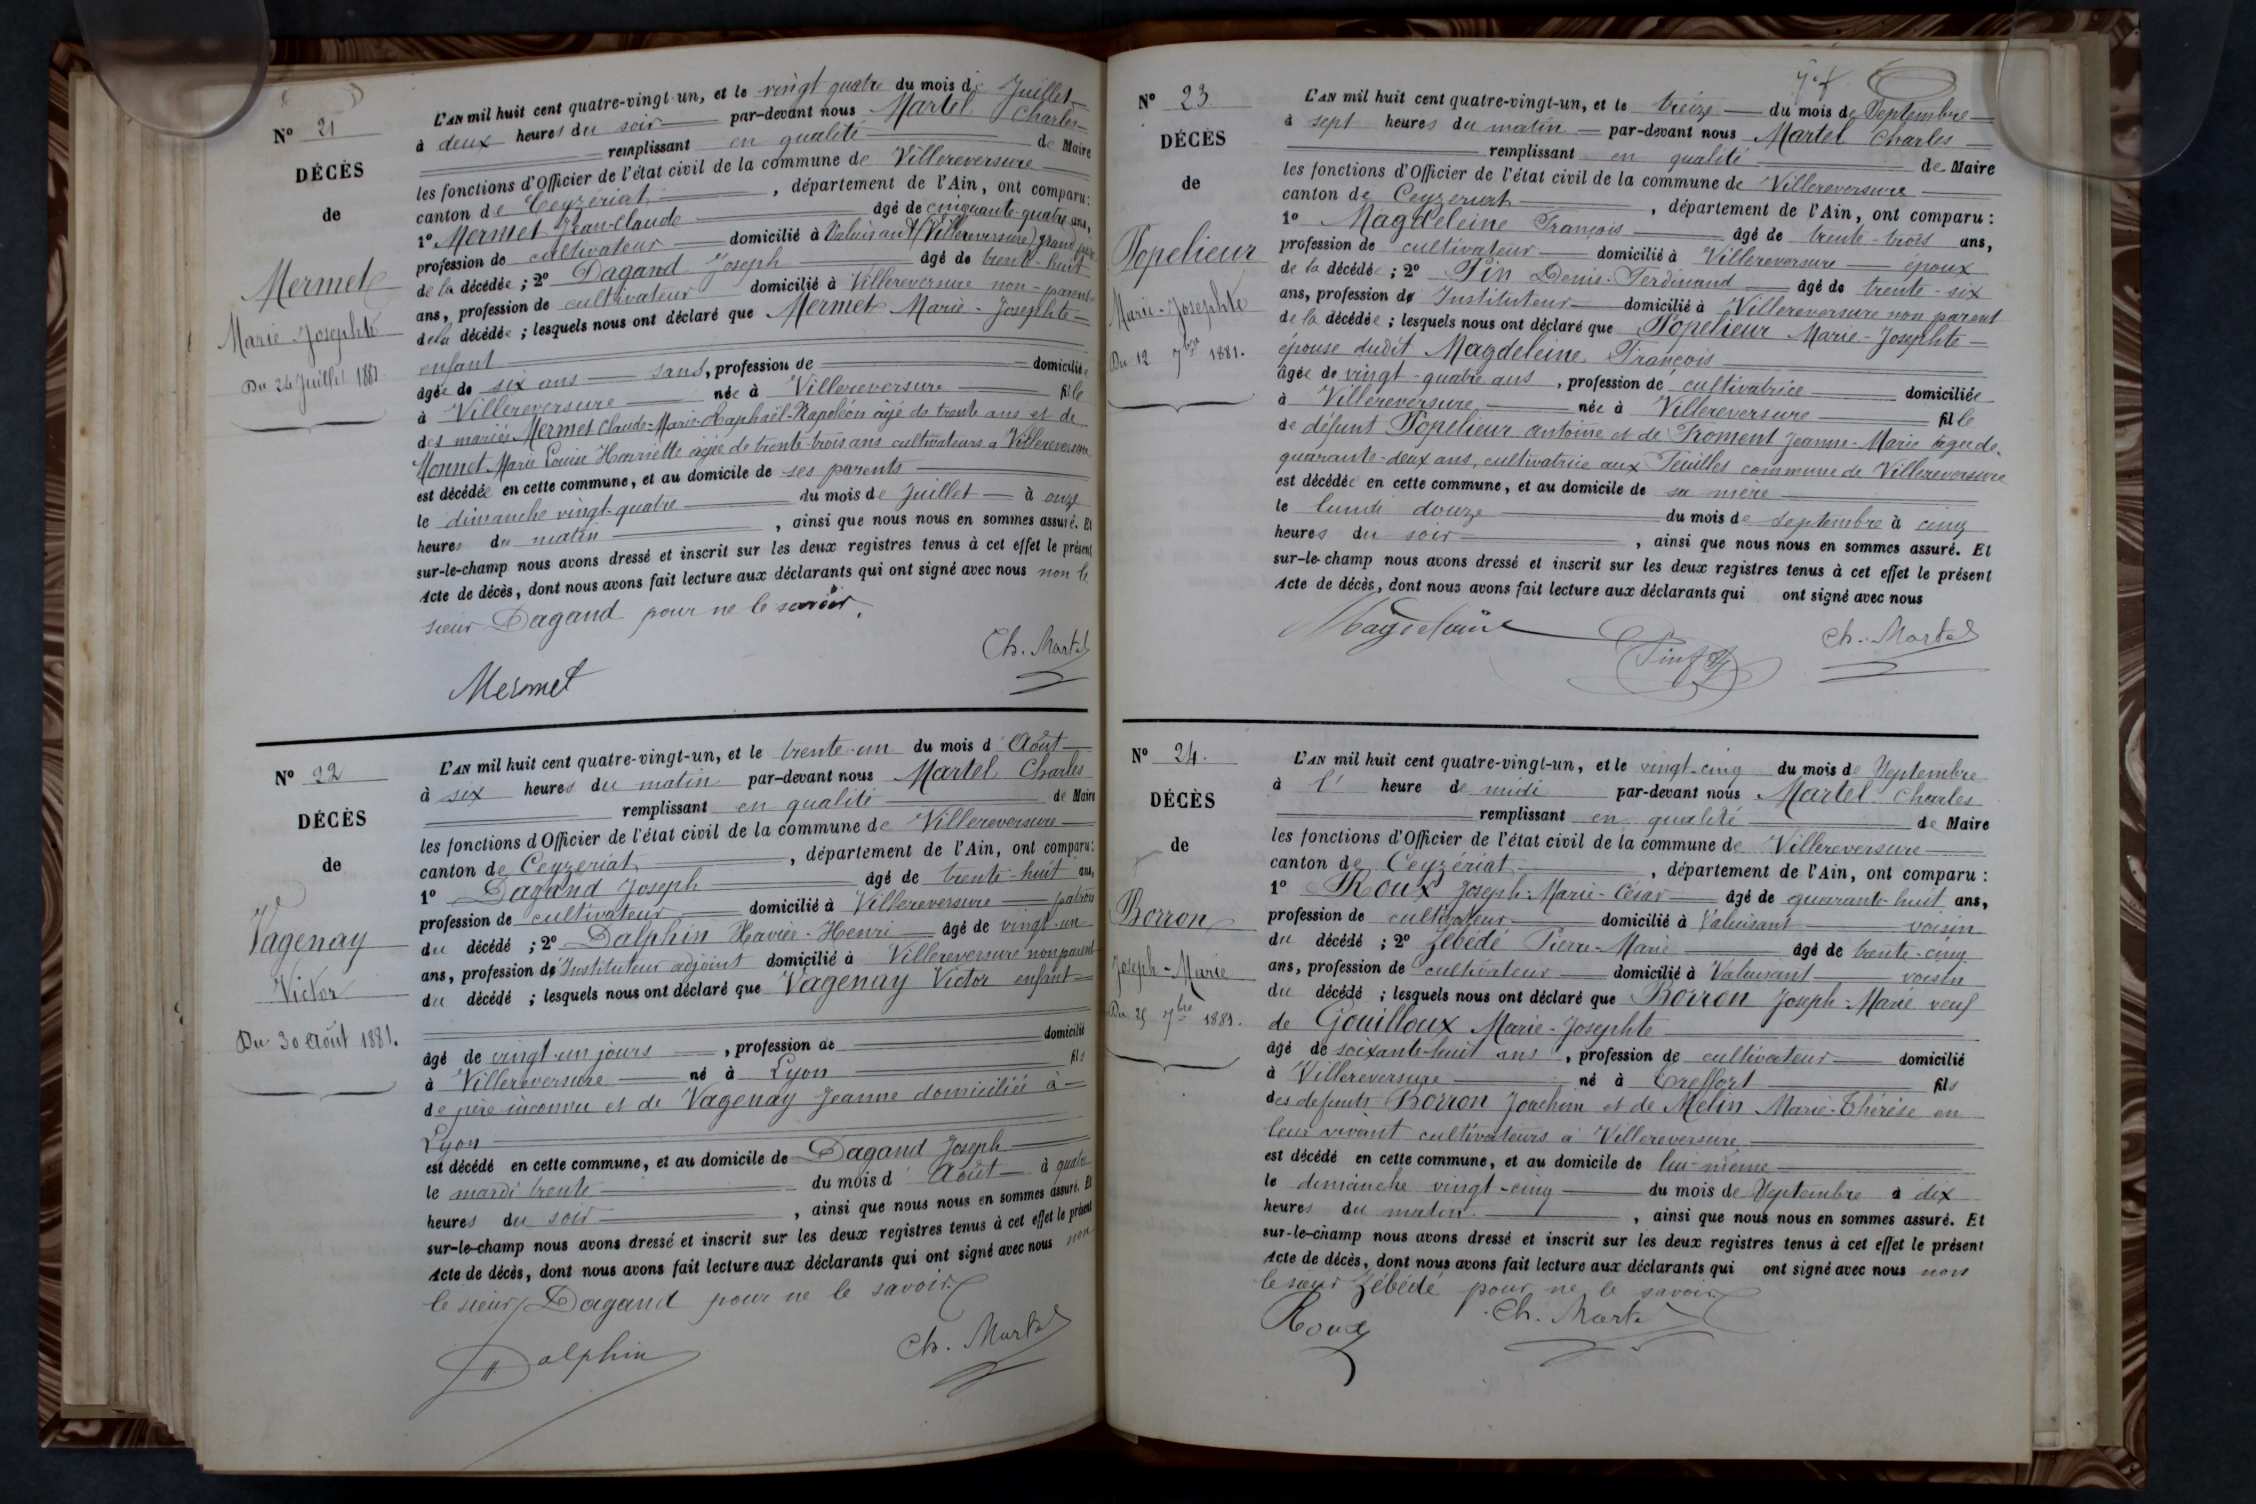 Nº 21
DÉCÈS
de
Mermet
Marie-Josephte
Du 24 Juillet 1881
L'AN mil huit cent quatre-vingt-un, et le vingt quatre du mois de Juillet
à deux heures du soir par-devant nous Martel Charles
remplissant en qualité de Maire
les fonctions d'Officier de l'état civil de la commune de Villereversure
canton de Ceyzériat, département de l'Ain, ont comparu :
1º Mermet Jean-Claude âgé de cinquante-quatre ans,
profession de cultivateur domicilié à Valuisant (Villereversure) grand père
de la décédée ; 2º Dagand Joseph âgé de trente-huit
ans, profession de cultivateur domicilié à Villereversure non-parent
de la décédée ; lesquels nous ont déclaré que Mermet Marie-Josephte
enfant
âgée de six ans sans, profession de domiciliée
à Villereversure née à Villereversure fille
des mariés Mermet Claude-Marie-Raphaël-Napoléon âgé de trente ans et de
Monnet Marie Louise Henriette âgée de trente-trois ans cultivateurs à Villereversure
est décédée en cette commune, et au domicile de ses parents
le dimanche vingt-quatre du mois de Juillet à onze
heures du matin, ainsi que nous nous en sommes assuré. Et
sur-le-champ nous avons dressé et inscrit sur les deux registres tenus à cet effet le présent
Acte de décès, dont nous avons fait lecture aux déclarants qui ont signé avec nous non le
sieur Dagand pour ne le savoir.
Ch. Martel
Mermet
Nº 22
DÉCÈS
de
Vagenay
Victor
Du 30 Août 1881.
L'AN mil huit cent quatre-vingt-un, et le trente-un du mois d'Août
à six heures du matin par-devant nous Martel Charles
remplissant en qualité de Maire
les fonctions d'Officier de l'état civil de la commune de Villereversure
canton de Ceyzeriat, département de l'Ain, ont comparu :
1º Dagand Joseph âgé de trente-huit ans,
profession de cultivateur domicilié à Villereversure patron
du décédé ; 2º Dalphin Xavier-Henri âgé de vingt-un
ans, profession de Instituteur adjoint domicilié à Villereversure non parent
du décédé ; lesquels nous ont déclaré que Vagenay Victor enfant
âgé de vingt-un jours, profession de domicilié
à Villereversure né à Lyon fils
de père inconnu et de Vagenay Jeanne domiciliée à
Lyon
est décédé en cette commune, et au domicile de Dagand Joseph
le mardi trente du mois d'Août à quatre
heures du soir, ainsi que nous nous en sommes assuré. Et
sur-le-champ nous avons dressé et inscrit sur les deux registres tenus à cet effet le présent
Acte de décès, dont nous avons fait lecture aux déclarants qui ont signé avec nous non
le sieur Dagand pour ne le savoir.
Dalphin
Ch. Martel
Nº 23
DÉCÈS
de
Popelieur
Marie-Josephte
Du 12 7bre 1881.
L'AN mil huit cent quatre-vingt-un, et le treize du mois de Septembre
à sept heures du matin par-devant nous Martel Charles
remplissant en qualité de Maire
les fonctions d'Officier de l'état civil de la commune de Villereversure
canton de Ceyzeriat, département de l'Ain, ont comparu :
1º Magdeleine François âgé de trente-trois ans,
profession de cultivateur domicilié à Villereversure époux
de la décédée ; 2º Pin Denis-Ferdinand âgé de trente-six
ans, profession de Instituteur domicilié à Villereversure non parent
de la décédée ; lesquels nous ont déclaré que Popelieur Marie-Josephte
épouse dudit Magdeleine François
âgée de vingt-quatre ans, profession de cultivatrice domiciliée
à Villereversure née à Villereversure fille
de défunt Popelieur antoine et de Froment Jeanne-Marie âgée de
quarante-deux ans, cultivatrice aux Feuilles commune de Villereversure
est décédée en cette commune, et au domicile de sa mère
le lundi douze du mois de septembre à cinq
heures du soir, ainsi que nous nous en sommes assuré. Et
sur-le-champ nous avons dressé et inscrit sur les deux registres tenus à cet effet le présent
Acte de décès, dont nous avons fait lecture aux déclarants qui ont signé avec nous
Magdeleine
Pin
Ch. Martel
Nº 24.
DÉCÈS
de
Borron
Joseph-Marie
Du 25 7bre 1881.
L'AN mil huit cent quatre-vingt-un, et le vingt-cinq du mois de Septembre
à l' heure de midi par-devant nous Martel Charles
remplissant en qualité de Maire
les fonctions d'Officier de l'état civil de la commune de Villereversure
canton de Ceyzériat, département de l'Ain, ont comparu :
1º Roux Joseph-Marie-César âgé de quarante-huit ans,
profession de cultivateur domicilié à Valuisant voisin
du décédé ; 2º Zébédé Pierre-Marie âgé de trente-cinq
ans, profession de cultivateur domicilié à Valuisant voisin
du décédé ; lesquels nous ont déclaré que Borron Joseph-Marie veuf
de Gouilloux Marie-Josephte
âgé de soixante-huit ans, profession de cultivateur domicilié
à Villereversure né à Treffort fils
des defunts Borron Joachim et de Mélin Marie-Thérèse en
leur vivant cultivateurs à Villereversure
est décédé en cette commune, et au domicile de lui-même
le dimanche vingt-cinq du mois de Septembre à dix
heures du matin, ainsi que nous nous en sommes assuré. Et
sur-le-champ nous avons dressé et inscrit sur les deux registres tenus à cet effet le présent
Acte de décès, dont nous avons fait lecture aux déclarants qui ont signé avec nous non
le sieur Zébédé pour ne le savoir
Roux
Ch. Martel